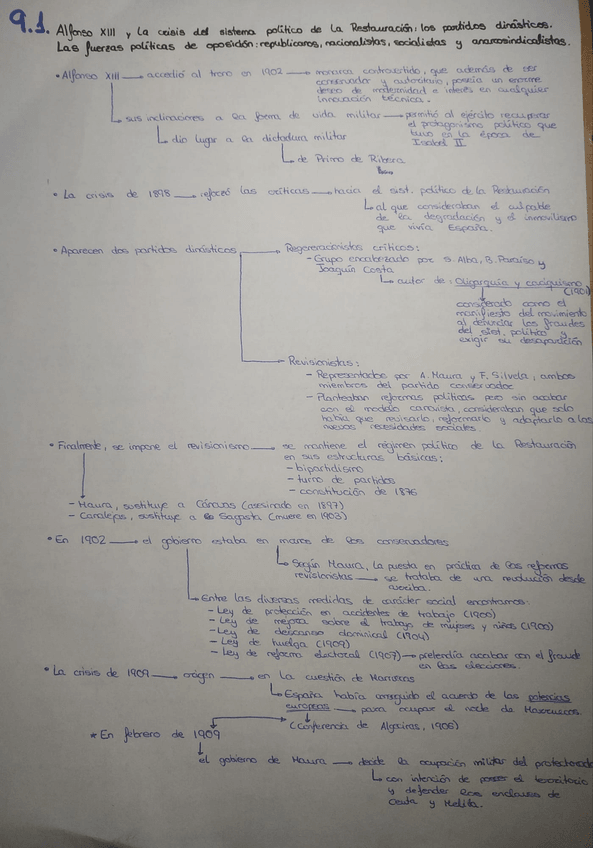 9.1. Alfonso XIII y la crisis del sistema político de la Restauración: los partidos dinásticos.
Las fuerzas políticas de oposición: republicanos, nacionalistas, socialistas y anarcosindicalistas.
• Alfonso XIII → accedió al trono en 1902 → monarca controvertido, que además de ser
conservador y autoritario, poseía un enorme
deseo de modernidad e interés en cualquier
innovación técnica.
sus inclinaciones a la forma de vida militar → permitió al ejército recuperar
el protagonismo político que
tuvo en la época de
Isabel II
dio lugar a la dictadura militar
de Primo de Rivera
• La crisis de 1898 → reforzó las críticas → hacia el sist. político de la Restauración
al que consideraban el culpable
de la degradación y el inmovilismo
que vivía España.
• Aparecen dos partidos dinásticos
Regeneracionistas críticos:
- Grupo encabezado por S. Alba, B. Paraíso y
Joaquín Costa
autor de: Oligarquía y caciquismo
(1901)
considerado como el
manifiesto del movimiento
al denunciar los fraudes
del sist. político y
exigir su desaparición
Revisionistas:
- Representados por A. Maura y F. Silvela, ambos
miembros del partido conservador
- Planteaban reformas políticas pero sin acabar
con el modelo canovista, consideraban que solo
había que revisarlo, reformarlo y adaptarlo a las
nuevas necesidades sociales.
• Finalmente, se impone el revisionismo → se mantiene el régimen político de la Restauración
en sus estructuras básicas:
- bipartidismo
- turno de partidos
- constitución de 1876
- Maura, sustituye a Cánovas (asesinado en 1897)
- Canalejas, sustituye a Sagasta (muere en 1903)
• En 1902 → el gobierno estaba en manos de los conservadores
Según Maura, la puesta en práctica de las reformas
revisionistas → se trataba de una revolución desde
arriba.
Entre las diversas medidas de carácter social encontramos:
- Ley de protección en accidentes de trabajo (1900)
- Ley de mejora sobre el trabajo de mujeres y niños (1900)
- Ley de descanso dominical (1904)
- Ley de huelga (1909)
- Ley de reforma electoral (1907) → pretendía acabar con el fraude
en las elecciones.
• La crisis de 1909 → origen → en la cuestión de Marruecos
España había conseguido el acuerdo de las potencias
europeas → para ocupar el norte de Marruecos.
(Conferencia de Algeciras, 1906)
* En febrero de 1909
el gobierno de Maura → decide la ocupación militar del protectorado
con intención de poseer el territorio
y defender los enclaves de
Ceuta y Melilla.